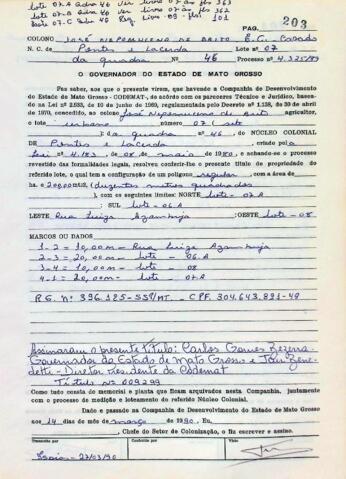 Lote 07-A
PAG. 203
COLONO JOSÉ NEPOMUCENO DE BRITO B.C. Casado
N. C. de Pontes e Lacerda Lote nº 07
da quadra nº 46 Processo nº 4.325/89
O GOVERNADOR DO ESTADO DE MATO GROSSO
Faz saber, aos que o presente virem, que havendo a Companhia de Desenvolvimento
do Estado de Mato Grosso - CODEMAT, de acôrdo com os pareceres Técnico e Jurídico, basea-
do na Lei nº 2.933, de 10 de junho de 1969, regulamentada pelo Decreto nº 1.138, de 30 de
abril de 1970, concedido, ao colono José Nepomuceno de Brito
agricultor, o lote urbano número 07 (sete)
da quadra nº 46, do NÚCLEO COLONIAL
DE Pontes e Lacerda criado pela
Lei nº 4.183, de 08 de maio 1980, e achando-se o processo
revestido das formalidades legais, resolveu conferir-lhe o presente título de propriedade do
referido lote, o qual tem a configuração de um polígono regular, com a área de
ha. e 200,00 m2 (duzentos metros quadrados)
, com os seguintes limites: NORTE Lote - 07-A
; SUL Lote - 06-A
LESTE Rua Luiza Azambuja ; OESTE Lote - 08
MARCOS OU DADOS
1 - 2 = 10,00m - Rua Luiza Azambuja
2 - 3 = 20,00m - Lote - 06.A
3 - 4 = 10,00m - Lote - 08
4 - 1 = 20,00m - Lote - 07.A
R.G. nº 396.125-SSP/MT. - CPF. 304.643.891-49
Assinaram o presente Título: Carlos Gomes Bezerra -
Governador do Estado de Mato Grosso e José Bene-
detti - Diretor Presidente da Codemat
Título Nº 009299
Como tudo consta do memorial e planta que ficam arquivados nesta Companhia, juntamente
com o processo de medição e loteamento do referido Núcleo Colonial.
Dado e passado na Companhia de Desenvolvimento do Estado de Mato Grosso
aos 14 dias do mês de março de 1990. Eu,
, Chefe do Setor de Colonização, o fiz escrever e assino.
Transcrito por
Conferido por
Visto
27/03/90